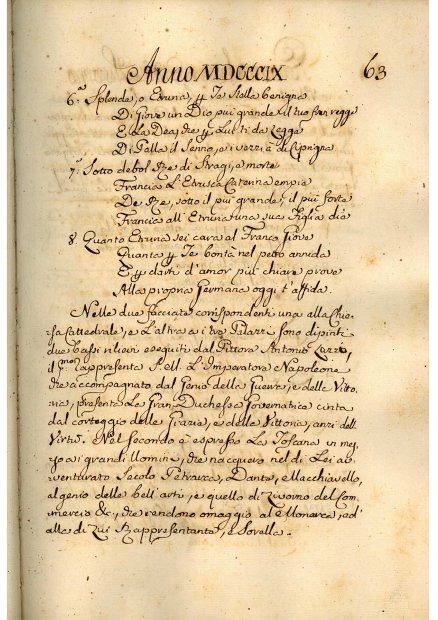 ANNO MDCCCIX 63
6.a Splende, o Etruria, p Te stella benigna
Di Giove un Dio piu grande il tuo fren regge
E La Dea, che p Lui ti da Legge
Di Palla il senno, e i vezzi à di Ciprigna
7.a Sotto debol Rè di stragi, e morte
Francia L'Etrusca Caterina empia
De Rè, sotto il piu grande, il piu forte
Francia all'Etruria una sua Figlia dia
8. Quanto Etruria sei cara al Franco Giove
Quanta p Te bonta nel petto annida
E p darti d'amor piu chiare prove
Alla propria Germana oggi t'affida.
Nelle due facciate corrispondenti una alla Chie-
sa Cattedrale, e L'altra a i tre Palazzi sono dipinti
due bassi rilievi eseguiti dal Pittore Antonio
il p.mo rappresenta S. ell. L'Imperatore Napoleone
che accompagnato dal Genio della Guerra, e della Vitto-
ria, presenta La Gran Duchessa Governatrice cinta
dal corteggio delle Grazie, e della Vittoria, anzi dell.
Virtù. Nel secondo è espresso La Toscana in mez-
zo a i grandi Uomini, che nacquero nel di Lei av-
venturato Secolo Petrarca, Dante, e Macchiavello,
al genio delle bell'arti, e quello di del Com-
mercio &c, che rendono omaggio al Monarca, ed
alla di Lui Rappresentante, e Sorella.